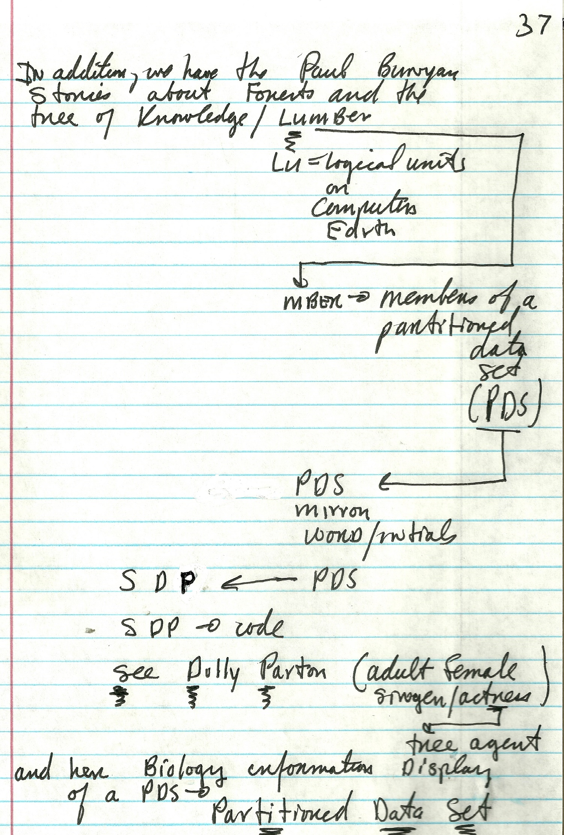 37
In addition, we have the Paul Bunyan
Stories about Forests and the
tree of Knowledge/Lumber
LU = logical units
on
Computers
Earth
MBER → members of a
partitioned
data
set
(PDS)
PDS
mirror
word/initials
S D P ← PDS
SDP → code
see Dolly Parton (adult female
singer/actress)
tree agent
and her Biology information Display
of a PDS →
Partitioned Data Set